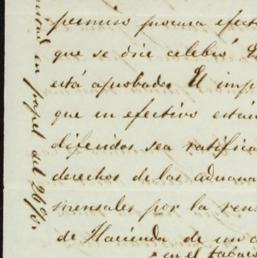 permiso para su efect
que se dice celebró
está aprobado. El imp
que en efectivo están
diferidos sea ratifica
derechos de las aduana
mensales por la ren
de Hacienda de un
en el tabaco
mitad en papel del 26 %.